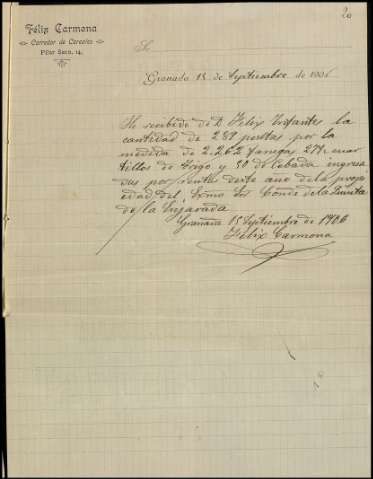 20
Félix Carmona
Corredor de Cereales
Pilar Seco, 14.
S
Granada 15 de Septiembre de 190
He recibido de D. Felix Infantes la
cantidad de 289 pesetas por la
medida de 2.262 fanegas 27 cuar
tillos de trigo y 50 de cebada ingresa
das por rentas deste año de la propi
edad del Exmo Sr Conde de la Quinta
de la Enjarada
Granada 15 Septiembre de 1906
Félix Carmona